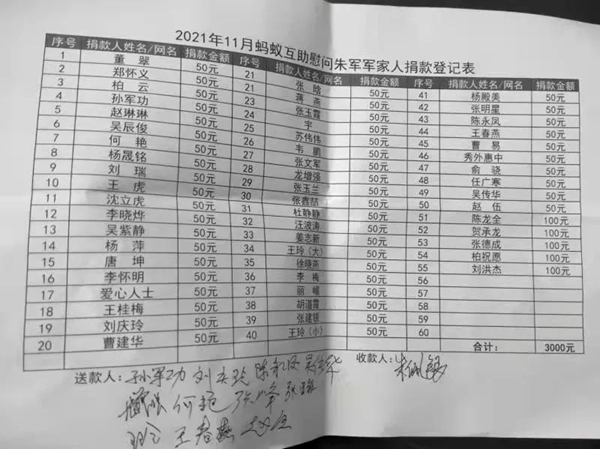 2021年11月蚂蚁互助慰问朱军军家人捐款登记表
序号 捐款人姓名/网名 捐款金额 序号 捐款人姓名/网名 捐款金额 序号 捐款人姓名/网名 捐款金额
1 董翠 50元 21 张晗 50元 41 杨殿美 50元
2 郑怀义 50元 21 蒋燕 50元 42 张明星 50元
3 柏云 50元 23 张玉霞 50元 43 陈永凤 50元
4 孙军功 50元 24 宇 50元 44 王春燕 50元
5 赵琳琳 50元 25 苏伟伟 50元 45 曹易 50元
6 吴辰俊 50元 26 韦鹏 50元 46 秀外惠中 50元
7 何艳 50元 27 张文军 50元 47 俞骁 50元
8 杨晟铭 50元 28 龙增强 50元 48 任广寒 50元
9 刘瑞 50元 29 张玉兰 50元 49 吴传华 50元
10 王虎 50元 30 张鑫喆 50元 50 赵伍 50元
11 沈立虎 50元 31 杜静静 50元 51 陈龙全 100元
12 李晓烨 50元 32 汪波涛 50元 52 贺承龙 100元
13 吴紫静 50元 33 姜志新 50元 53 张德成 100元
14 杨萍 50元 34 王玲（大） 50元 54 柏祝愿 100元
15 唐坤 50元 35 徐晓燕 50元 55 刘洪杰 100元
16 李怀明 50元 36 李梅 50元 56
17 爱心人士 50元 37 丽 50元 57
18 王桂梅 50元 38 胡道霞 50元 58
19 刘庆玲 50元 39 张建银 50元 59
20 曹建华 50元 40 王玲（小） 50元 60
合计： 3000元
送款人：孙军功 收款人：
何艳
王春燕